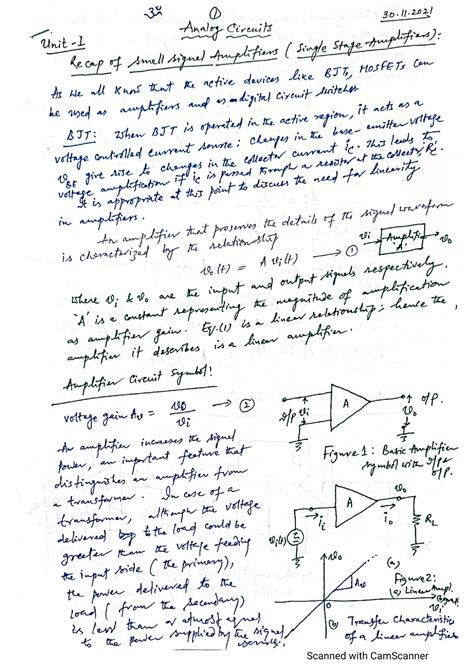 ૐ
①
30.11.2021
Analog Circuits
Unit-I
Recap of small signal Amplifiers (Single Stage Amplifiers):
As we all know that the active devices like BJTs, MOSFETs can
be used as amplifiers and as digital circuit switches
BJT: When BJT is operated in the active region, it acts as a
voltage controlled current source: changes in the base-emitter voltage
vBE give rise to changes in the collector current ic. This leads to
voltage amplification if ic is passed through a resistor at the collector, Rc.
It is appropriate at this point to discuss the need for linearity
in amplifiers.
An amplifier that preserves the details of the signal waveform
is characterized by the relationship
vi Amplifier 'A' vo
vo(t) = A vi(t) → ①
Where vi & vo are the input and output signals respectively.
'A' is a constant representing the magnitude of amplification
as amplifier gain. Eq.(1) is a linear relationship; hence the
amplifier it describes is a linear amplifier.
Amplifier Circuit Symbol:
voltage gain Av = vo/vi → ②
i/p vi A vo o/p.
Figure 1: Basic Amplifier
symbol with i/p &
o/p.
An amplifier increases the signal
power, an important feature that
distinguishes an amplifier from
a transformer. In case of a
transformer, although the voltage
delivered to the load could be
greater than the voltage feeding
the input side (the primary),
the power delivered to the
load (from the secondary)
is less than or atmost equal
to the power supplied by the signal
source.
vi(t) ii A io vo RL
(a)
vo Av
0 vi
Figure 2:
(a) Linear Ampl.
(b) Transfer Characteristics
of a linear amplifier
Scanned with CamScanner